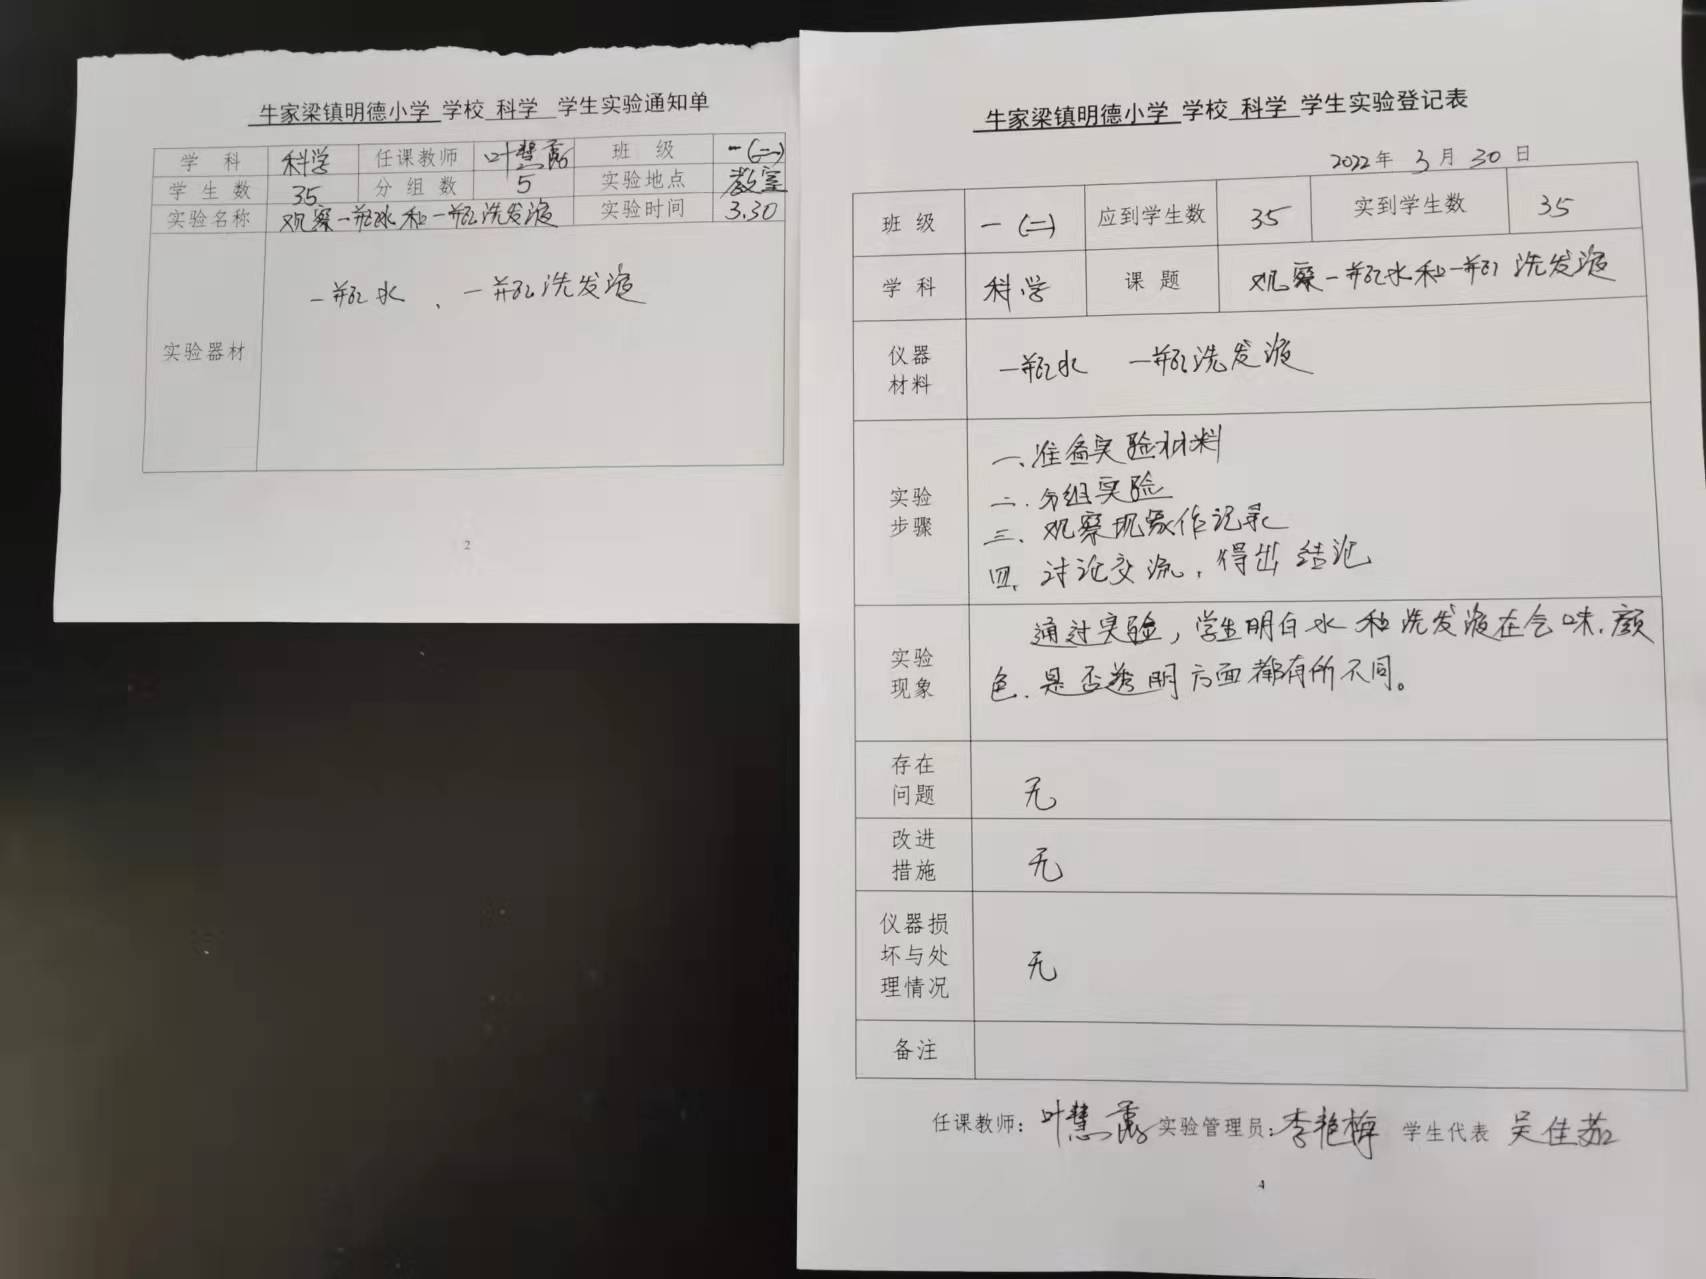 牛家梁镇明德小学 学校 科学 学生实验通知单
学 科 科学 任课教师 叶慧 班 级 一(二)
学 生 数 35 分 组 数 5 实验地点 教室
实验名称 观察一瓶水和一瓶洗发液 实验时间 3.30
实验器材 一瓶水、一瓶洗发液
2
牛家梁镇明德小学 学校 科学 学生实验登记表
2022年 3月 30日
班 级 一(二) 应到学生数 35 实到学生数 35
学 科 科学 课 题 观察一瓶水和一瓶洗发液
仪器
材料
一瓶水 一瓶洗发液
实验
步骤
一、准备实验材料
二.分组实验
三、观察现象作记录
四、讨论交流,得出结论
实验
现象
通过实验,学生明白水和洗发液在气味.颜
色.是否透明方面都有所不同。
存在
问题
无
改进
措施
无
仪器损
坏与处
理情况
无
备注
任课教师: 叶慧 实验管理员: 李艳梅 学生代表 吴佳茹
4